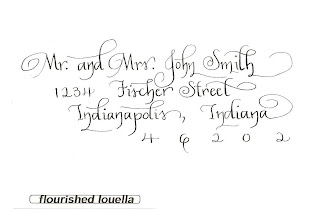 Mr. and Mrs. John Smith
1234 Fischer Street
Indianapolis, Indiana
4 6 2 0 2
flourished louella